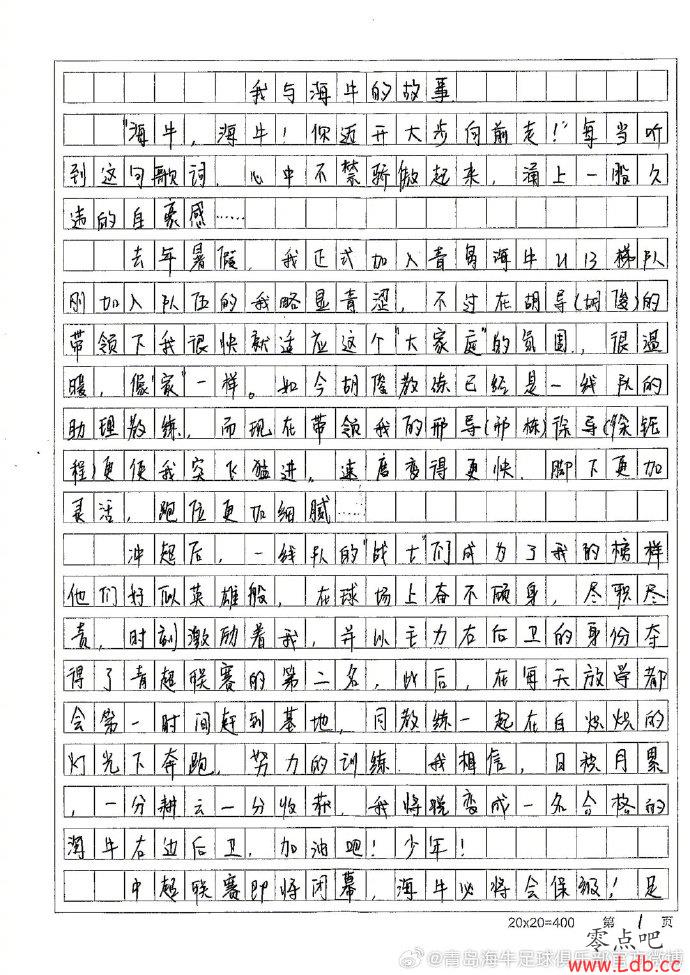 我与海牛的故事
“海牛，海牛！你迈开大步向前走！”每当听
到这句歌词，心中不禁骄傲起来，涌上一股久
违的自豪感……
去年暑假，我正式加入青岛海牛U13梯队
刚加入队伍的我略显青涩，不过在胡导(胡俊)的
带领下我很快就适应这个“大家庭”的氛围，很温
暖，像“家”一样。如今胡俊教练已经是一线队的
助理教练，而现在带领我的邢导(邢栋)徐导(徐钰
程)更使我突飞猛进，速度变得更快，脚下更加
灵活，跑位更加细腻……
冲超后，一线队的“战士”们成为了我的榜样
他们好似英雄般，在球场上奋不顾身，尽职尽
责，时刻激励着我，并以主力右后卫的身份夺
得了青超联赛的第二名，此后，在每天放学都
会第一时间赶到基地，同教练一起在白炽炽的
灯光下奔跑，努力的训练，我相信，日积月累
，一分耕云一分收获，我将蜕变成一名合格的
海牛右边后卫，加油吧！少年！
中超联赛即将闭幕，海牛必将会保级！足
20x20=400 第 1 页
零点吧
@青岛海牛足球俱乐部官方微博
www.Ldb.cc